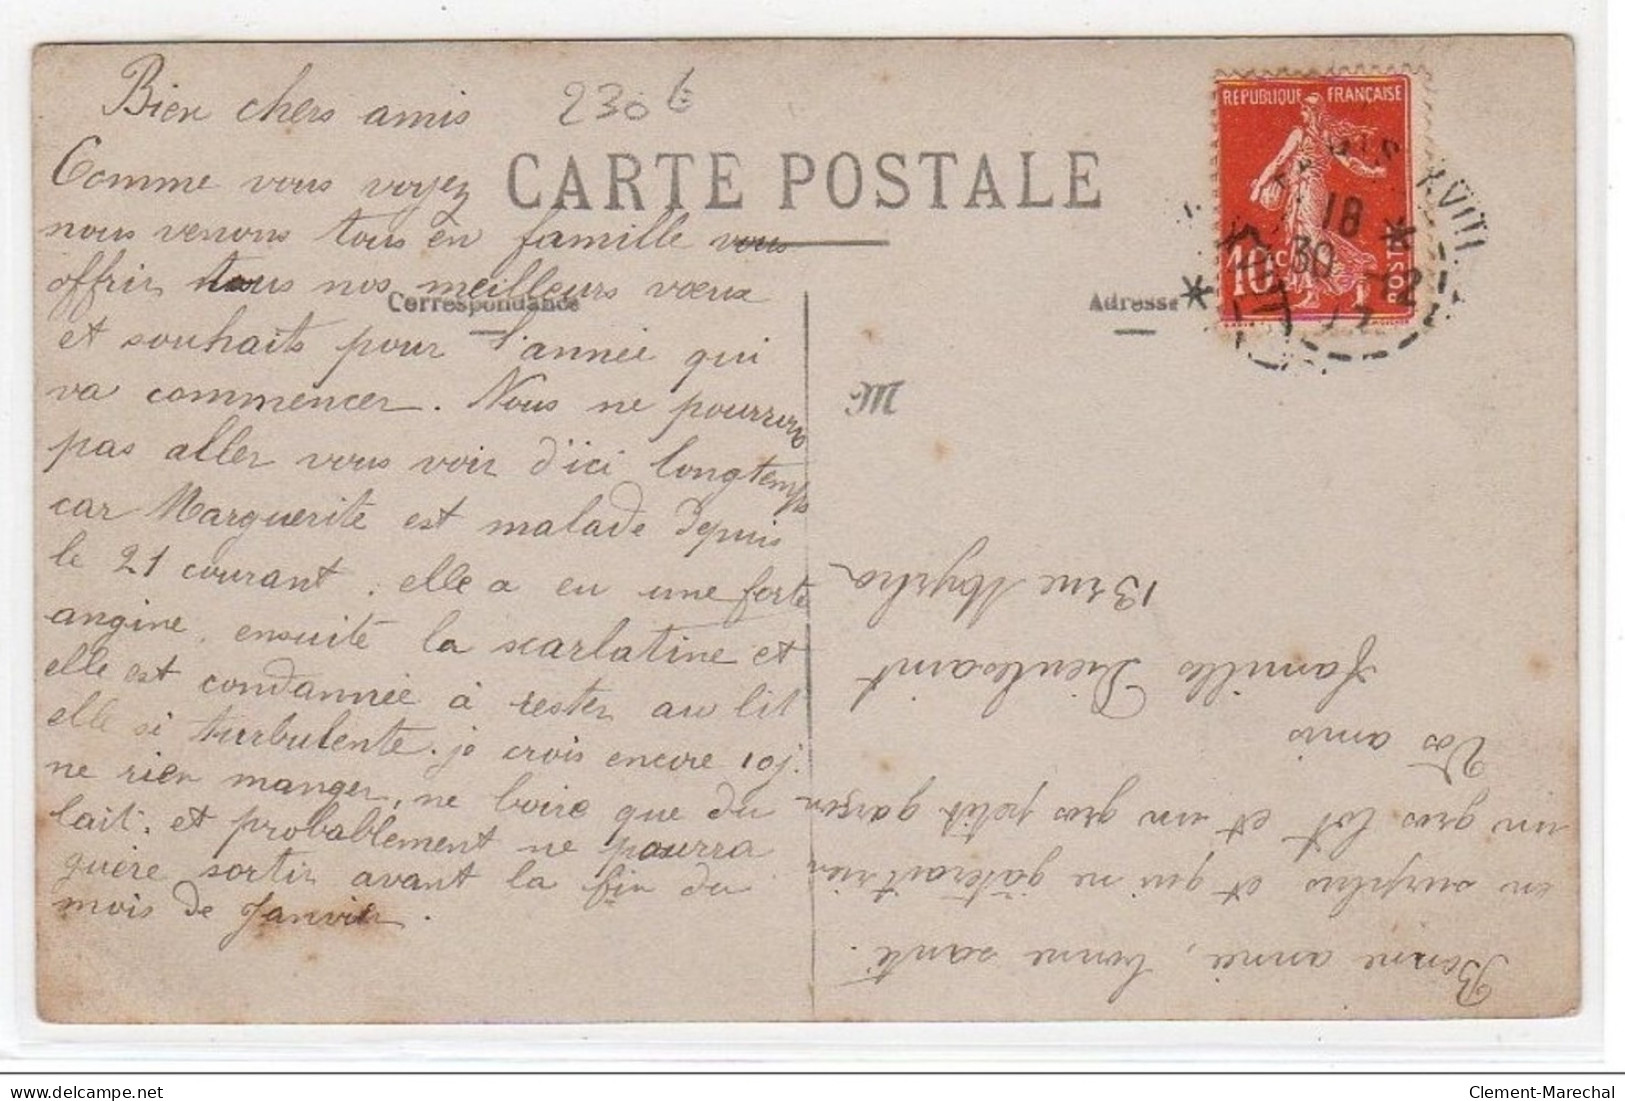 Bien chers amis
230 €
CARTE POSTALE
Comme vous voyez
nous venons tous en famille vous
offrir tous nos meilleurs vœux
Correspondance
et souhaits pour l'année qui
va commencer. Nous ne pourrons
pas aller vous voir d'ici longtemps
car Marguerite est malade depuis
le 21 courant. elle a eu une forte
angine. ensuite la scarlatine et
elle est condannée à rester au lit
elle si turbulente. je crois encore 10 j.
ne rien manger, ne boire que du
lait. et probablement ne pourra
guère sortir avant la fin du
mois de Janvier.
REPUBLIQUE FRANÇAISE
10 c
POSTES
PARIS XVIII
18
30 -12
Adresse
M
Bonne année, bonne santé.
en surplus et qui ne gâterait rien
un gros lot et un gros petit garçon
Vos amis
Famille Dieulesaint
13 rue Myrha
delcampe.net
Clement-Marechal